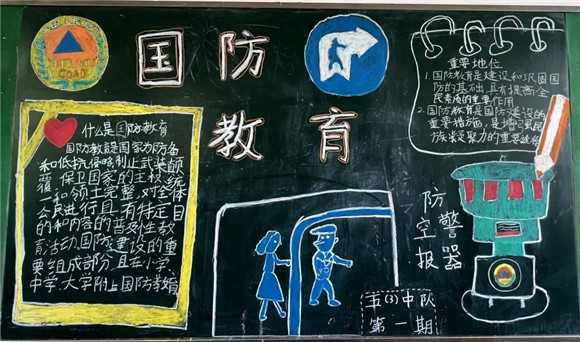 国防
教育
什么是国防教育
国防教育是国家为防备
和抵抗侵略制止武装颠
覆,保卫国家的主权统
一和领土完整,对全体
公民进行具有特定目
的和内容的普及性教
育活动,国防建设的重
要组成部分,且在小学、
中学、大学附上国防教育
重要地位
1.国防教育是建设和巩固国
防的基础,是提高全
民素质的重要作用
2.国防教育是国防建设的
重要措施,是增强民
族凝聚力的重要途径
防空警报器
五(3)中队
第一期